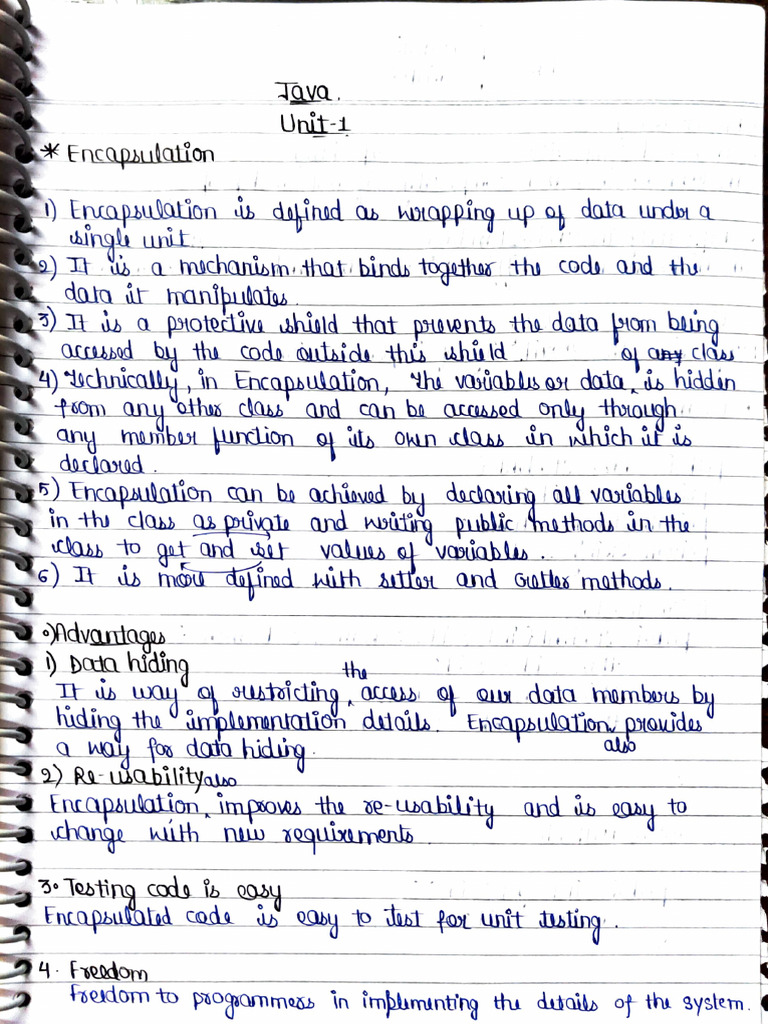 Java.
Unit-1
* Encapsulation
1) Encapsulation is defined as wrapping up of data under a
single unit.
2) It is a mechanism that binds together the code and the
data it manipulates.
3) It is a protective shield that prevents the data from being
accessed by the code outside this shield.
of any class
4) Technically, in Encapsulation, the variables or data is hidden
from any other class and can be accessed only through
any member function of its own class in which it is
declared.
5) Encapsulation can be achieved by declaring all variables
in the class as private and writing public methods in the
class to get and set values of variables.
6) It is more defined with setter and Getter methods.
Advantages
1) Data hiding
the
It is way of restricting access of our data members by
hiding the implementation details. Encapsulation provides
also
a way for data hiding.
2) Re-usability
also
Encapsulation improves the re-usability and is easy to
change with new requirements
3. Testing code is easy
Encapsulated code is easy to test for unit testing.
4. Freedom
Freedom to programmers in implementing the details of the system.